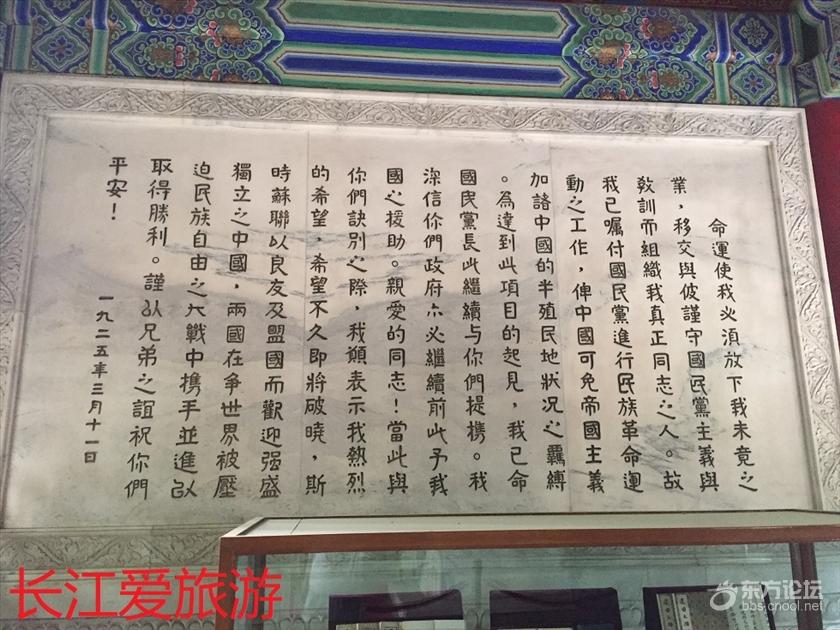 命運使我必須放下我未竟之
業，移交與彼謹守國民黨主義與
教訓而組織我真正同志之人。故
我已囑付國民黨進行民族革命運
動之工作，俾中國可免帝國主義
加諸中國的半殖民地狀况之羈縛
。為達到此項目的起見，我已命
國民黨長此繼續与你們提携。我
深信你們政府亦必繼續前此予我
國之援助。親愛的同志！當此與
你們訣別之際，我願表示我熱烈
的希望，希望不久即將破曉，斯
時蘇聯以良友及盟國而歡迎强盛
獨立之中國，兩國在争世界被壓
迫民族自由之大戰中携手並進以
取得勝利。謹以兄弟之誼祝你們
平安！
一九二五年三月十一日
长江爱旅游
东方论坛
bbs.cnool.net